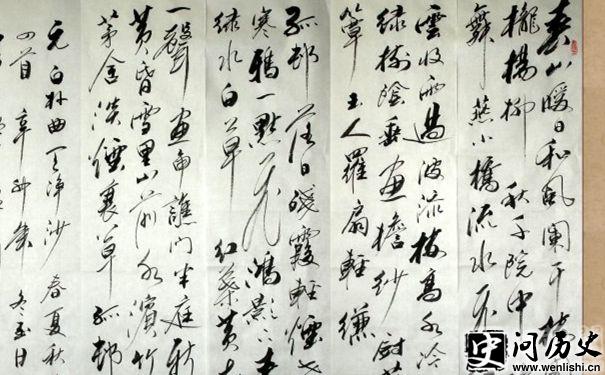 春山暖日和風闌干
櫳楊柳 秋千院中
舞燕小橋流水
雲收雨過波添樓高水冷
綠樹陰垂畫檐紗廚
簟玉人羅扇輕縑
孤村落日殘霞輕煙
寒鴉一點飛鴻影下
綠水白草 紅葉黃
一聲畫角譙門半庭新
黃昏雪里山前水濱竹
茅舍淡煙衰草孤村
元白朴曲天淨沙 春夏秋
四首 辛卯 冬至日
问历史
www.wenlishi.cn